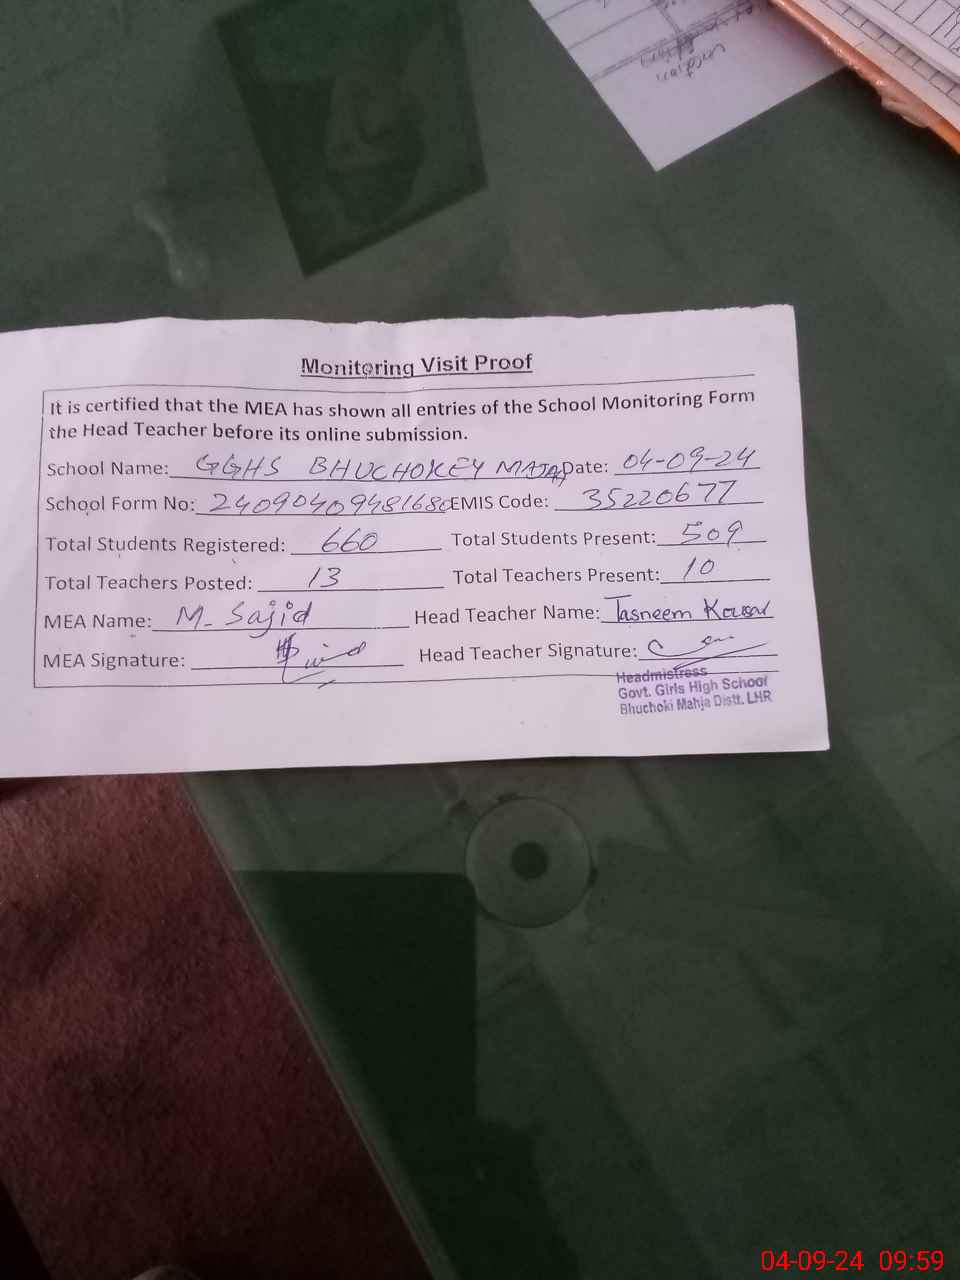 Monitoring Visit Proof
It is certified that the MEA has shown all entries of the School Monitoring Form
the Head Teacher before its online submission.
School Name: GGHS BHUCHOKEY MAJA Date: 04-09-24
School Form No: 24090409481680 EMIS Code: 35220677
Total Students Registered: 660 Total Students Present: 509
Total Teachers Posted: 13 Total Teachers Present: 10
MEA Name: M. Sajid Head Teacher Name: Tasneem Kausar
MEA Signature: Head Teacher Signature:
Headmistress
Govt. Girls High School
Bhuchoki Mahja Distt. LHR
04-09-24 09:59